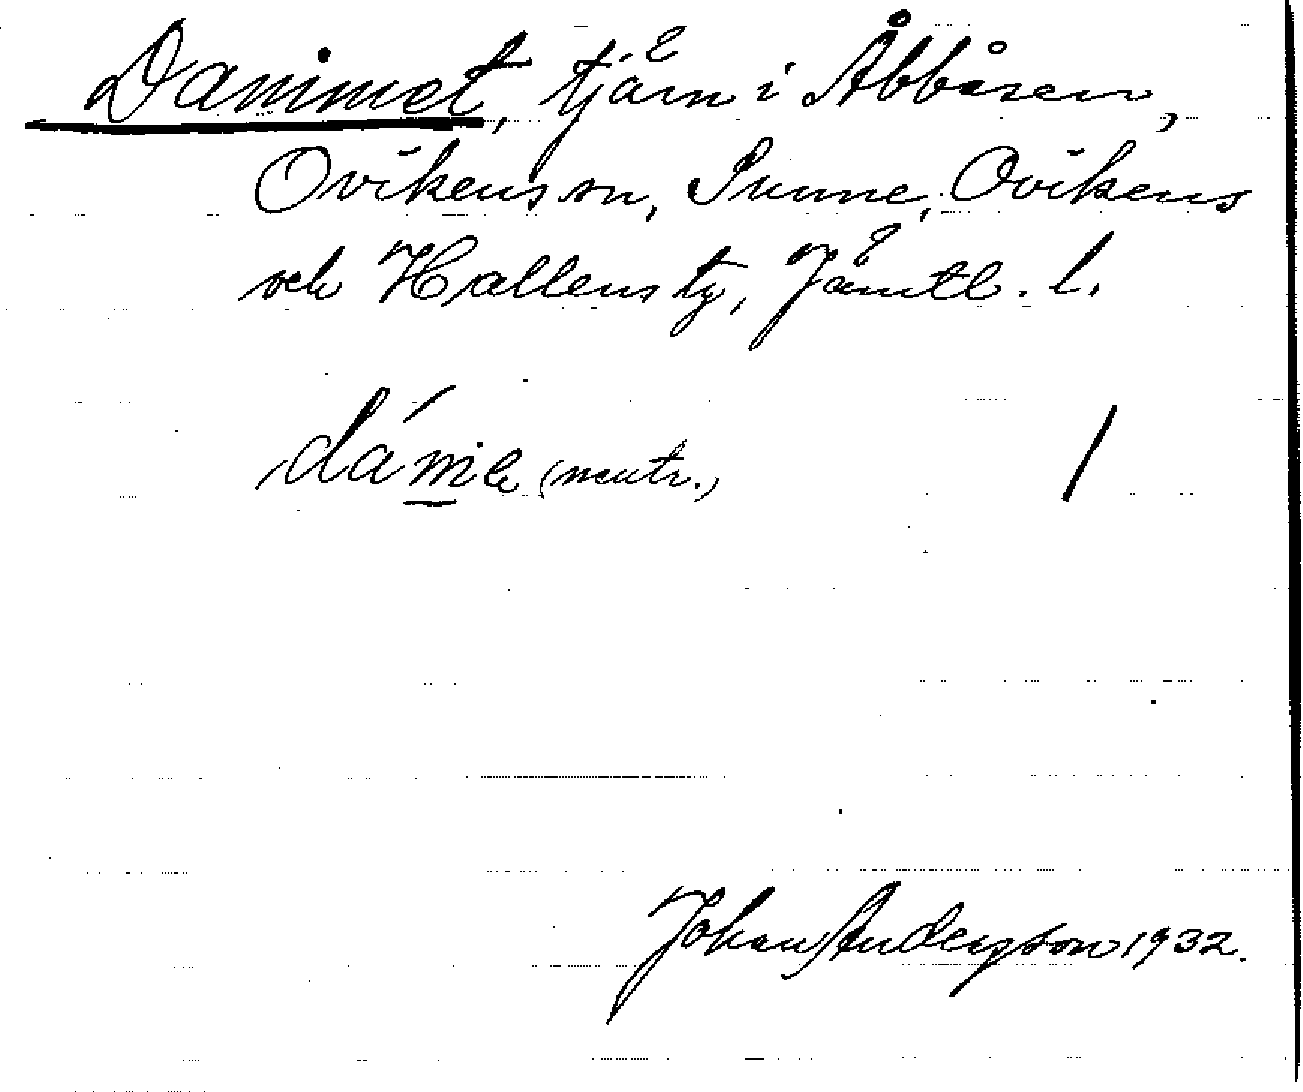 Dammet, tjärn i Åbbåsen,
Ovikens sn, Sunne, Ovikens
och Hallens tg, Jämtl. l.
(neutr.)
Johan Anderson 1932.